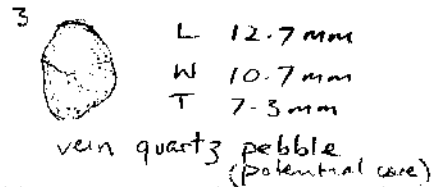 3
L 12.7 mm
W 10.7 mm
T 7.3 mm
vein quartz pebble
(potential core)